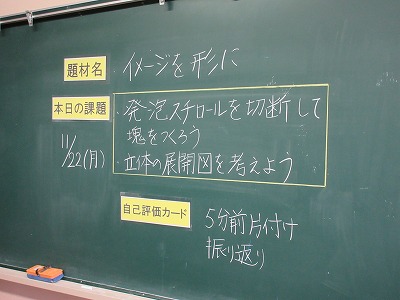 題材名 イメージを形に
本日の課題
・発泡スチロールを切断して
塊をつくろう
・立体の展開図を考えよう
11/22(月)
自己評価カード
5分前片付け
振り返り